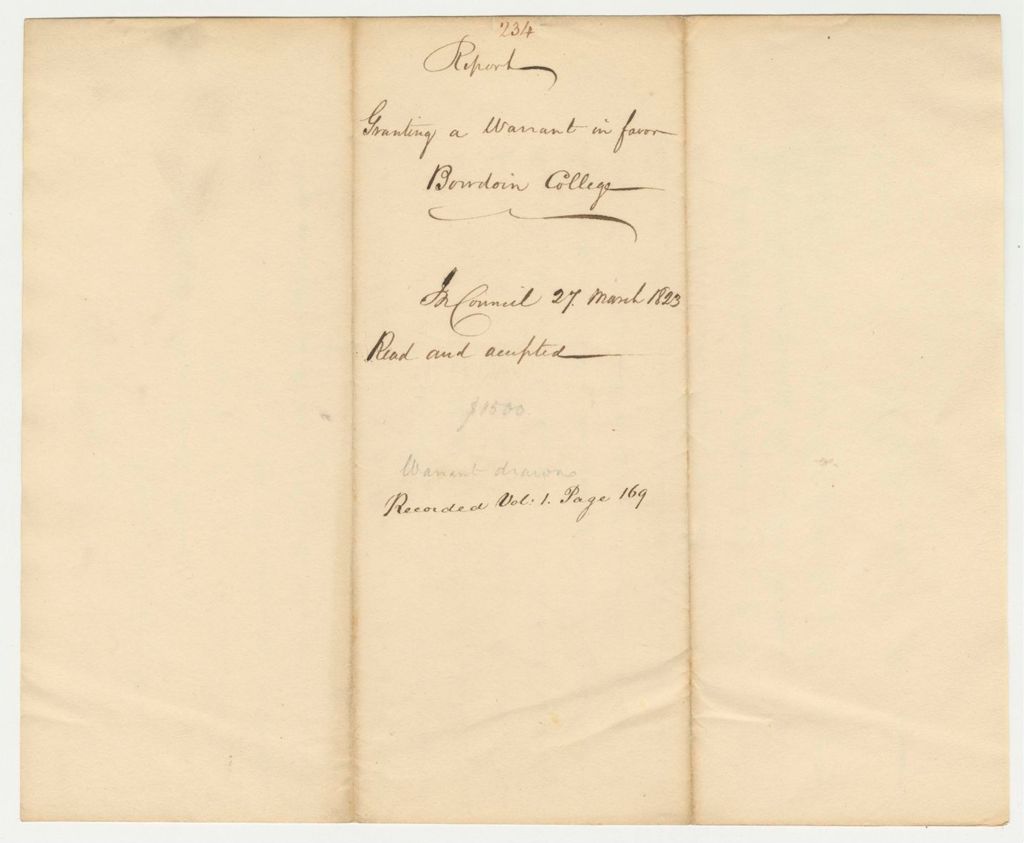 234
Report
Granting a Warrant in favor
Bowdoin College
In Council 27. March 1823
Read and accepted
$1500.
Warrant drawn
Recorded Vol: 1. Page 169